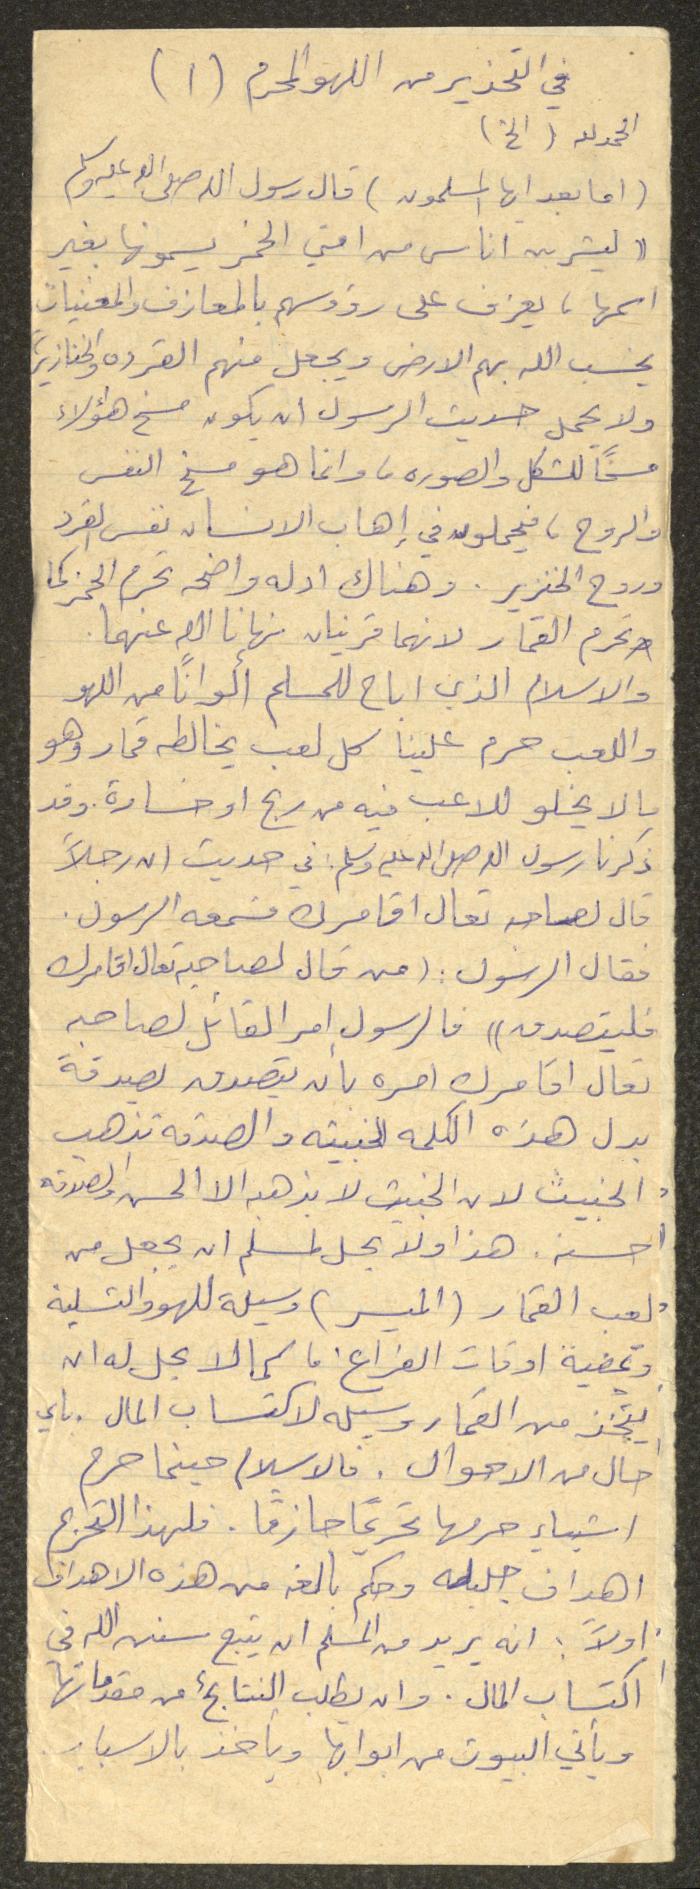 في التحذير من اللهو المحرم (١)
الحمد لله (الخ)
(اما بعد ايها المسلمون) قال رسول الله صلى الله عليه وسلم
" ليشربن اناس من امتي الخمر يسمونها بغير
اسمها، يعزف على رؤوسهم بالمعازف والمغنيات
يخسف الله بهم الارض ويجعل منهم القرده والخنازير"
ولا يحمل حديث الرسول ان يكون مسخ هؤلاء
مسخًا للشكل والصوره، وانما هو مسخ النفس
والروح، فيحملون في إهاب الانسان نفس القرد
وروح الخنزير. وهناك ادله واضحه تحرم الخمر كما
تحرم القمار لانهما قرينان نهانا الله عنهما.
والاسلام الذي اباح للمسلم ألوانًا من اللهو
واللعب حرم علينا كل لعب يخالطه قمار وهو
ما لا يخلو اللاعب فيه من ربح او خسارة. وقد
ذكرنا رسول الله صلى الله عليه وسلم: في حديث ان رجلاً
قال لصاحبه تعال اقامرك فسمعه الرسول.
فقال الرسول: (من قال لصاحبه تعال اقامرك
فليتصدق)) فالرسول امر القائل لصاحبه
تعال اقامرك امره بأن يتصدق بصدقة
بدل هذه الكلمه الخبيثه والصدقه تذهب
الخبيث لان الخبيث لا يذهبه الا الحسن والصدقه
حسنه. هذا ولا يحل لمسلم ان يجعل من
لعب القمار (الميسر) وسيلة للهو والتسلية
وتمضية اوقات الفراغ، كما لا يحل له ان
يتخذ من القمار وسيله لاكتساب المال. باي
حال من الاحوال. فالاسلام حينما حرم
اشياء حرمها تحريمًا جازمًا. فلهذا التحريم
اهداف جليله وحكم بالغه من هذه الاهداف
اولاً: انه يريد من المسلم ان يتبع سنن الله في
اكتساب المال. وان يطلب النتائج من مقدماتها
ويأتي البيوت من ابوابها ويأخذ بالاسباب.